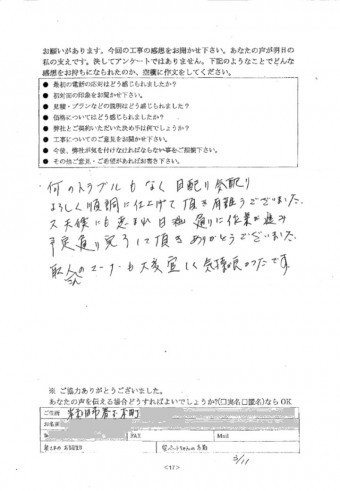 お願いがあります。今回の工事の感想をお聞かせ下さい。あなたの声が明日の
私の支えです。決してアンケートではありません。下記のようなことでどんな
感想をお持ちになられたのか、空欄に作文をしてください。
● 最初の電話の応対はどう感じられましたか?
● 初対面の印象をお聞かせ下さい。
● 見積・プランなどの説明はどう感じられましたか?
● 価格についてはどう感じられましたか?
● 弊社とご契約いただいた決め手は何でしょうか?
● 工事についてのご意見をお聞かせ下さい。
● 今後、弊社が気を付けなければならない事をご指摘下さい。
● その他ご意見・ご希望があればお書き下さい。
・何のトラブルもなく目配り気配り
よろしく順調に仕上げて頂き有難うございました。
又天候にも恵まれ日程通りに作業が進み
予定通り完了して頂きありがとうございました。
職人さんのマナーも大変宜しく気持良かったです。
※ ご協力ありがとうございました。
あなたの声を伝える場合どうすればよいでしょうか?(□実名□匿名)なら OK
ご住所
お名前
℡ FAX Mail
3/11
<17>